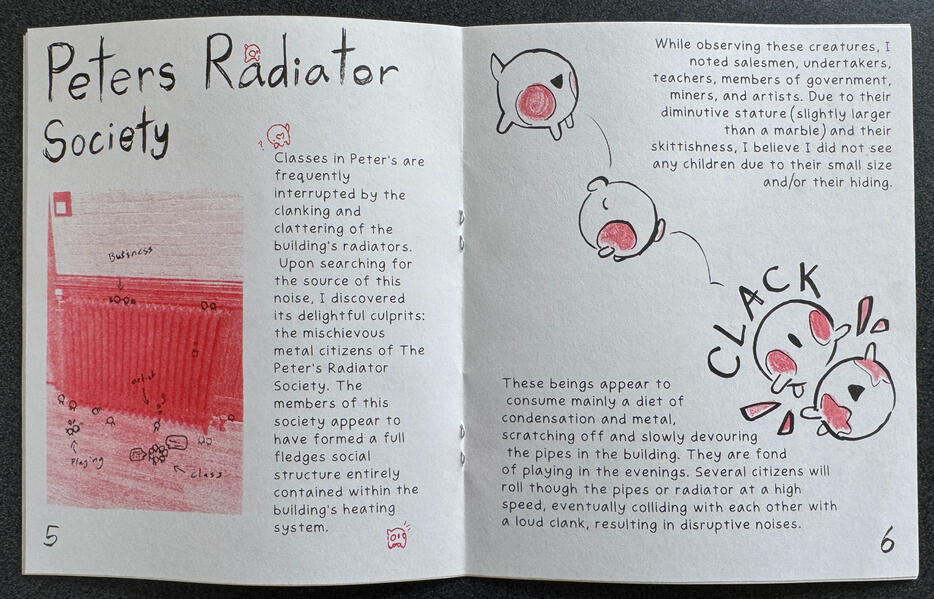 Peters Radiator
Society
?
Classes in Peter's are
frequently
interrupted by the
clanking and
clattering of the
building's radiators.
Upon searching for
the source of this
noise, I discovered
its delightful culprits:
the mischievous
metal citizens of The
Peter's Radiator
Society. The
members of this
society appear to
have formed a full
fledges social
structure entirely
contained within the
building's heating
system.
Business
artist
Playing
class
5
While observing these creatures, I
noted salesmen, undertakers,
teachers, members of government,
miners, and artists. Due to their
diminutive stature (slightly larger
than a marble) and their
skittishness, I believe I did not see
any children due to their small size
and/or their hiding.
CLACK
These beings appear to
consume mainly a diet of
condensation and metal,
scratching off and slowly devouring
the pipes in the building. They are fond
of playing in the evenings. Several citizens will
roll though the pipes or radiator at a high
speed, eventually colliding with each other with
a loud clank, resulting in disruptive noises.
6